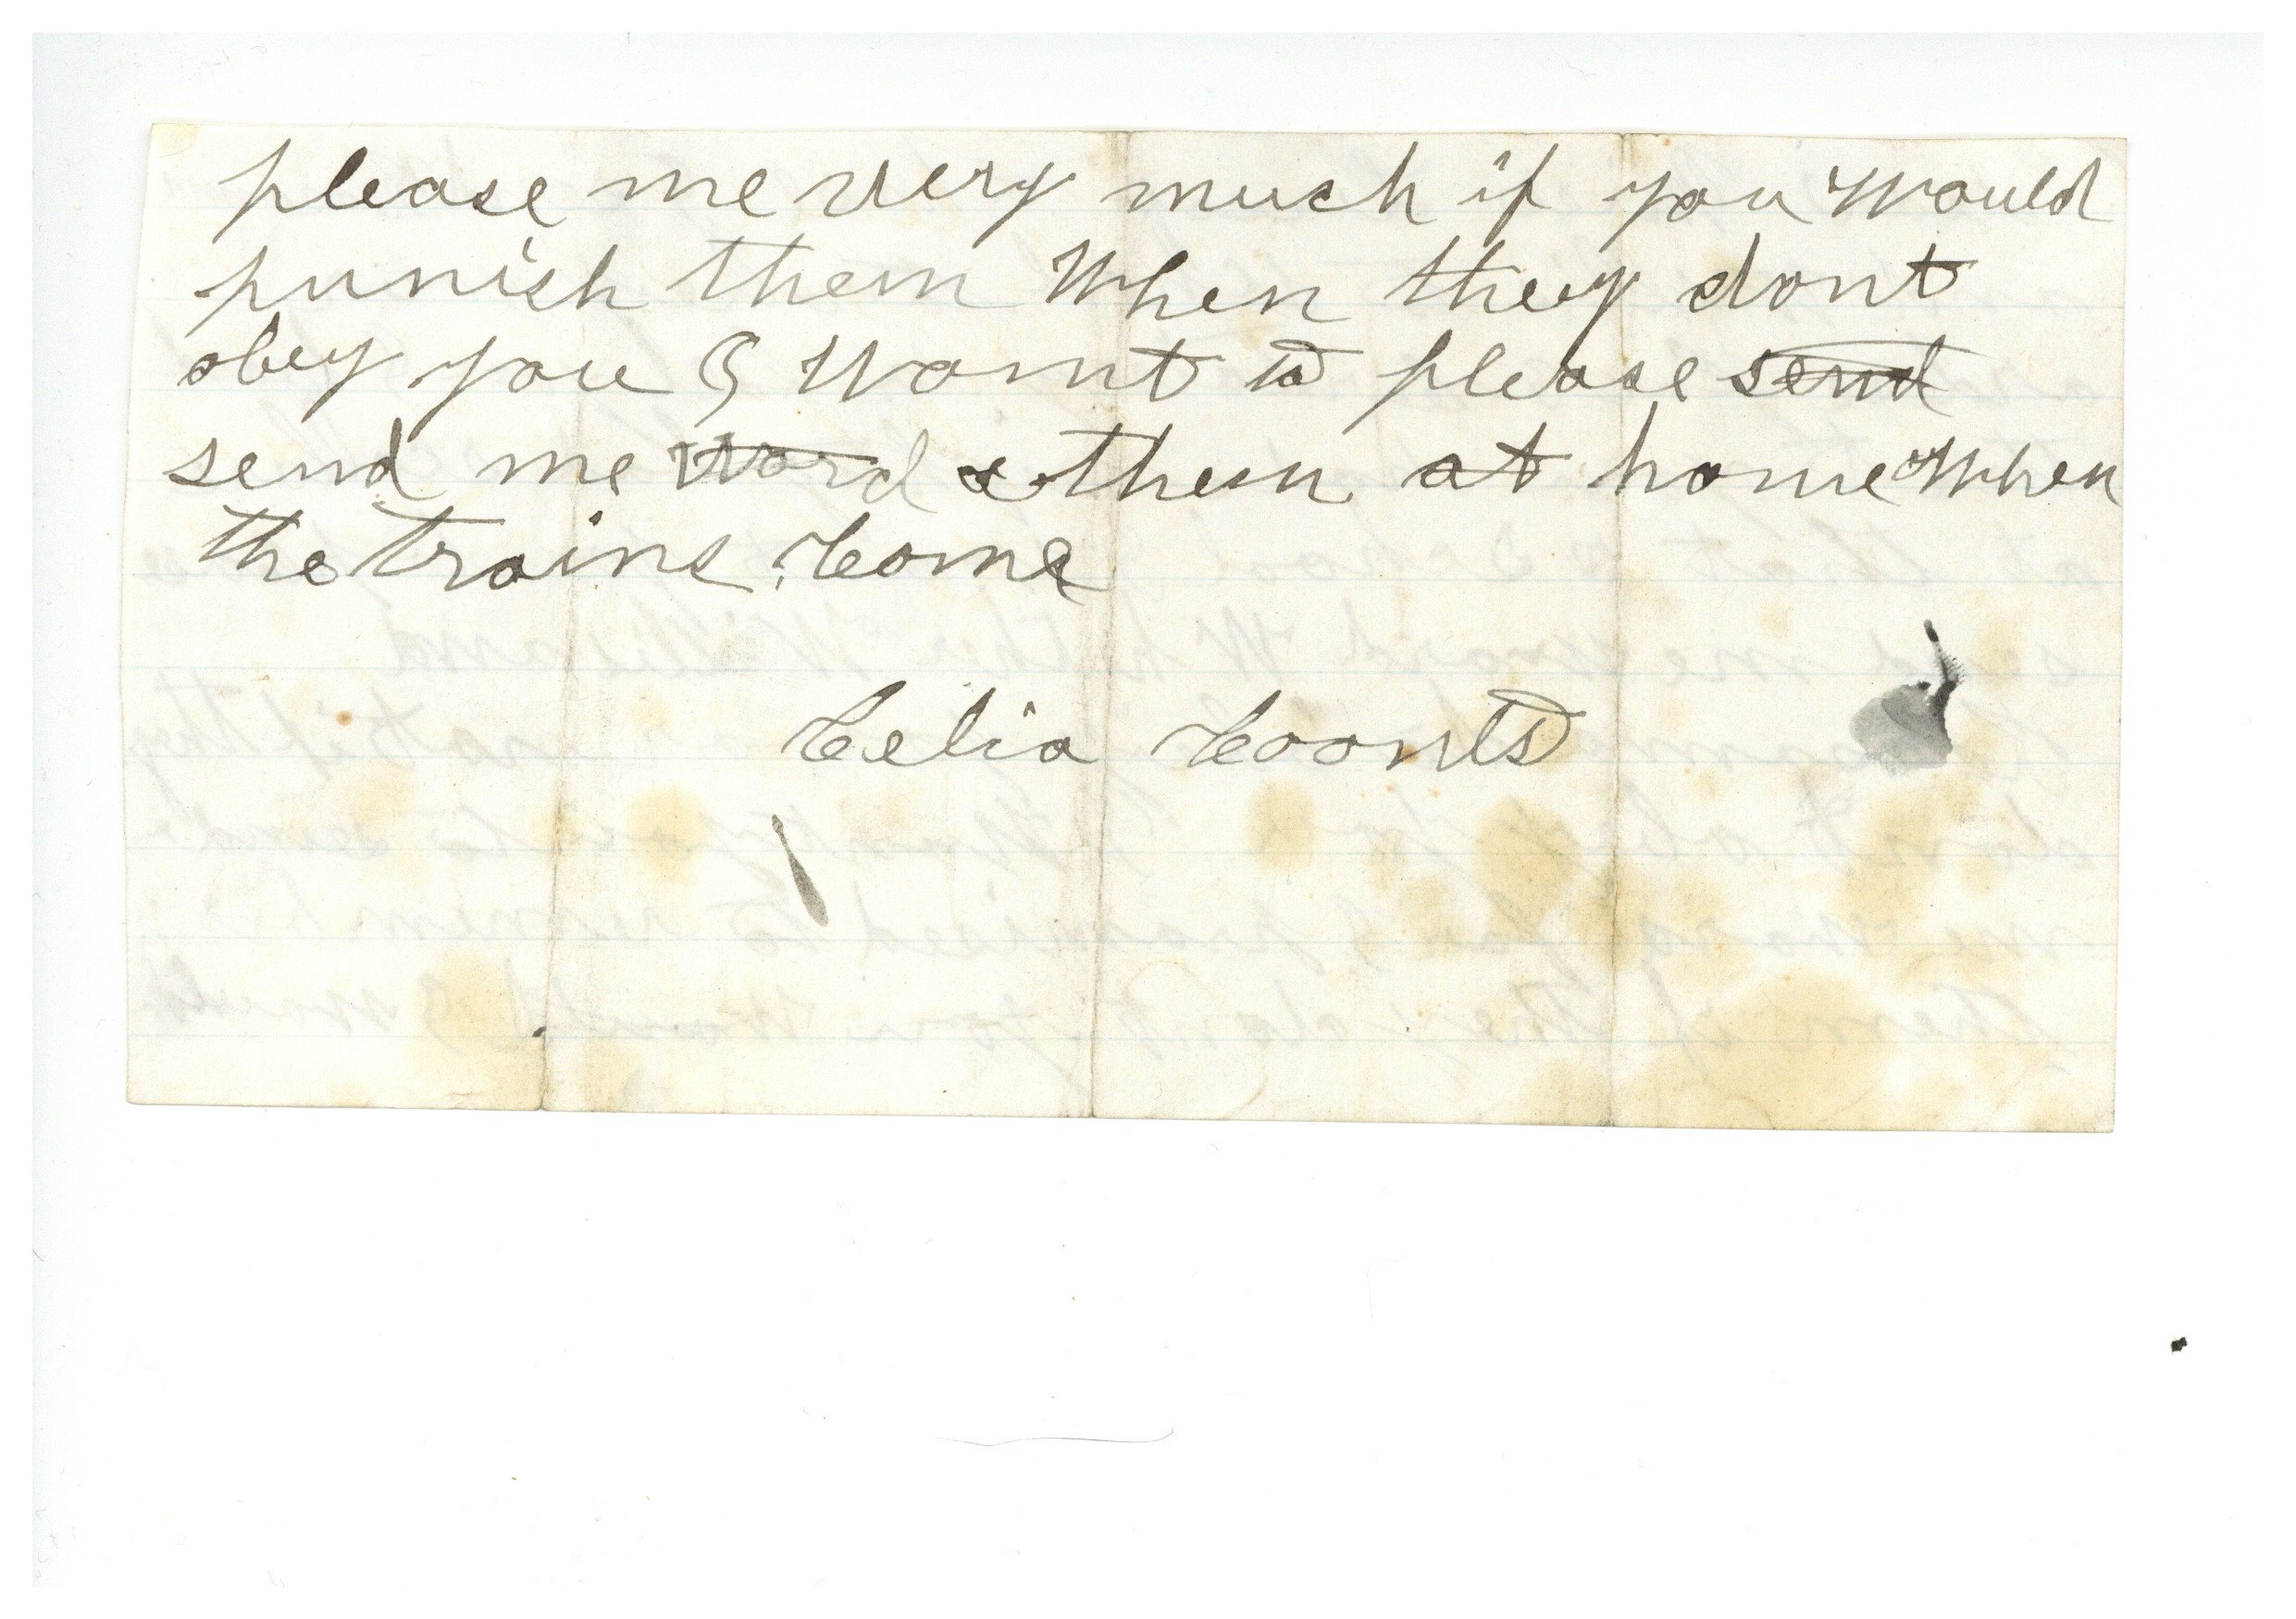 please me very much if you would
punish them When they dont
obey you I Want to please send
send me word & them at home When
the trains Come
Celia Coonts